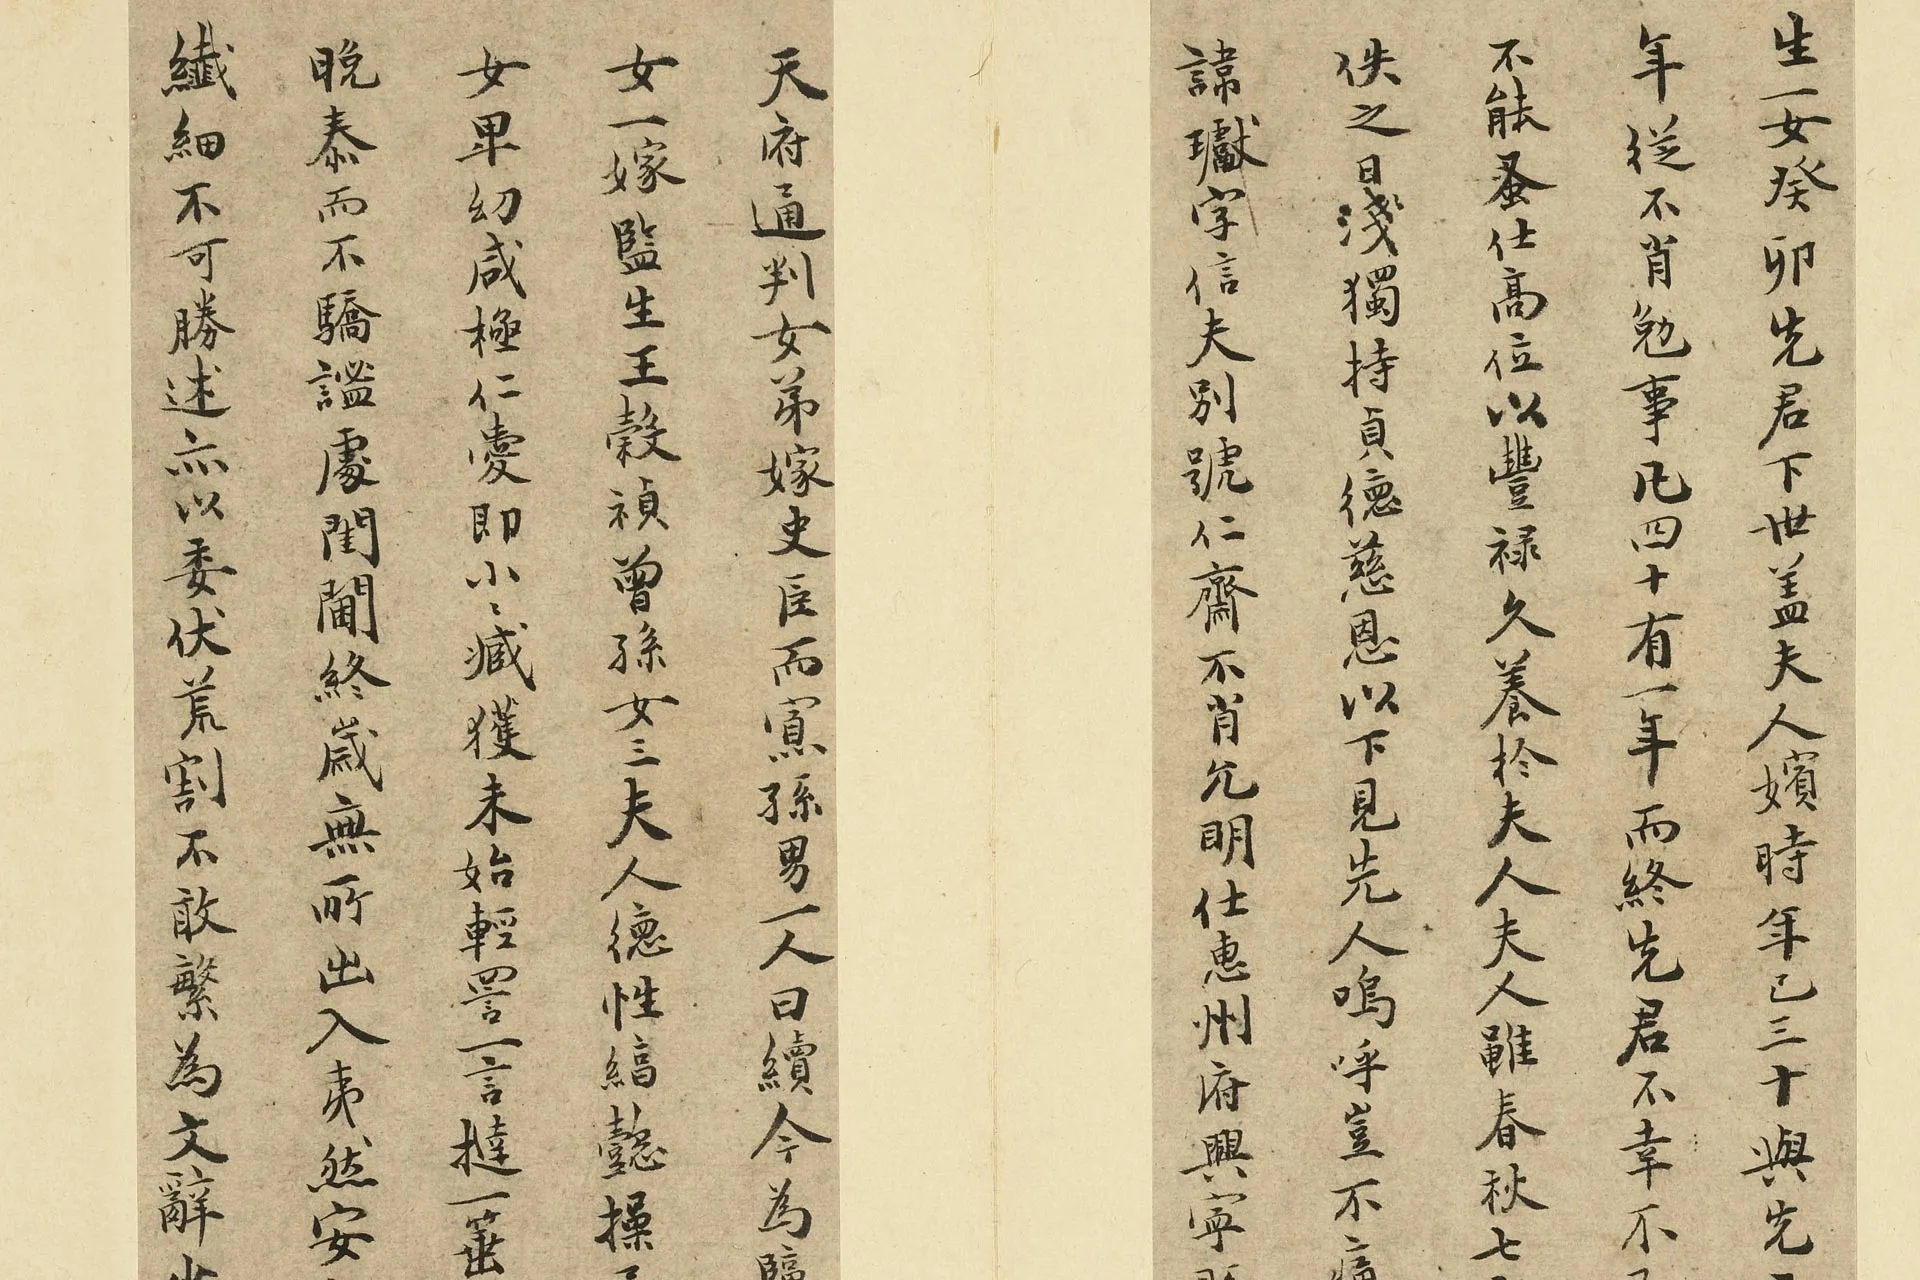 生一女癸卯先君下世盖夫人嬪時年已三十與先
年從不肖勉事凡四十有一年而終先君不幸不
不能蚤仕高位以豐禄久養於夫人夫人雖春秋七
佚之日淺獨持貞德慈恩以下見先人嗚呼豈不痛
諱瓛字信夫別號仁齋不肖允明仕惠州府興寧
天府通判女弟嫁史臣而寡孫男一人曰續今為臨
女一嫁監生王穀禎曾孫女三夫人德性縞懿操
女卑幼咸極仁愛即小〻臧獲未始輕詈一言撻一菙
晚泰而不驕謐處閨闈終歲無所出入夷然安
纖細不可勝述亦以委伏荒割不敢繁為文辭